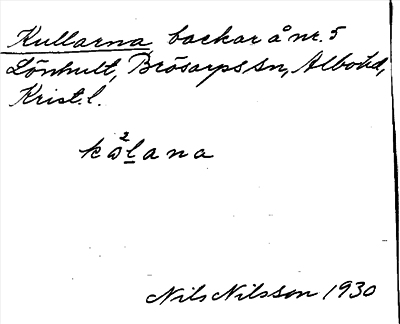 Kullarna, backar å nr. 5
Lönhult, Brösarps sn, Albo hd,
Krist. l.
Nils Nilsson 1930